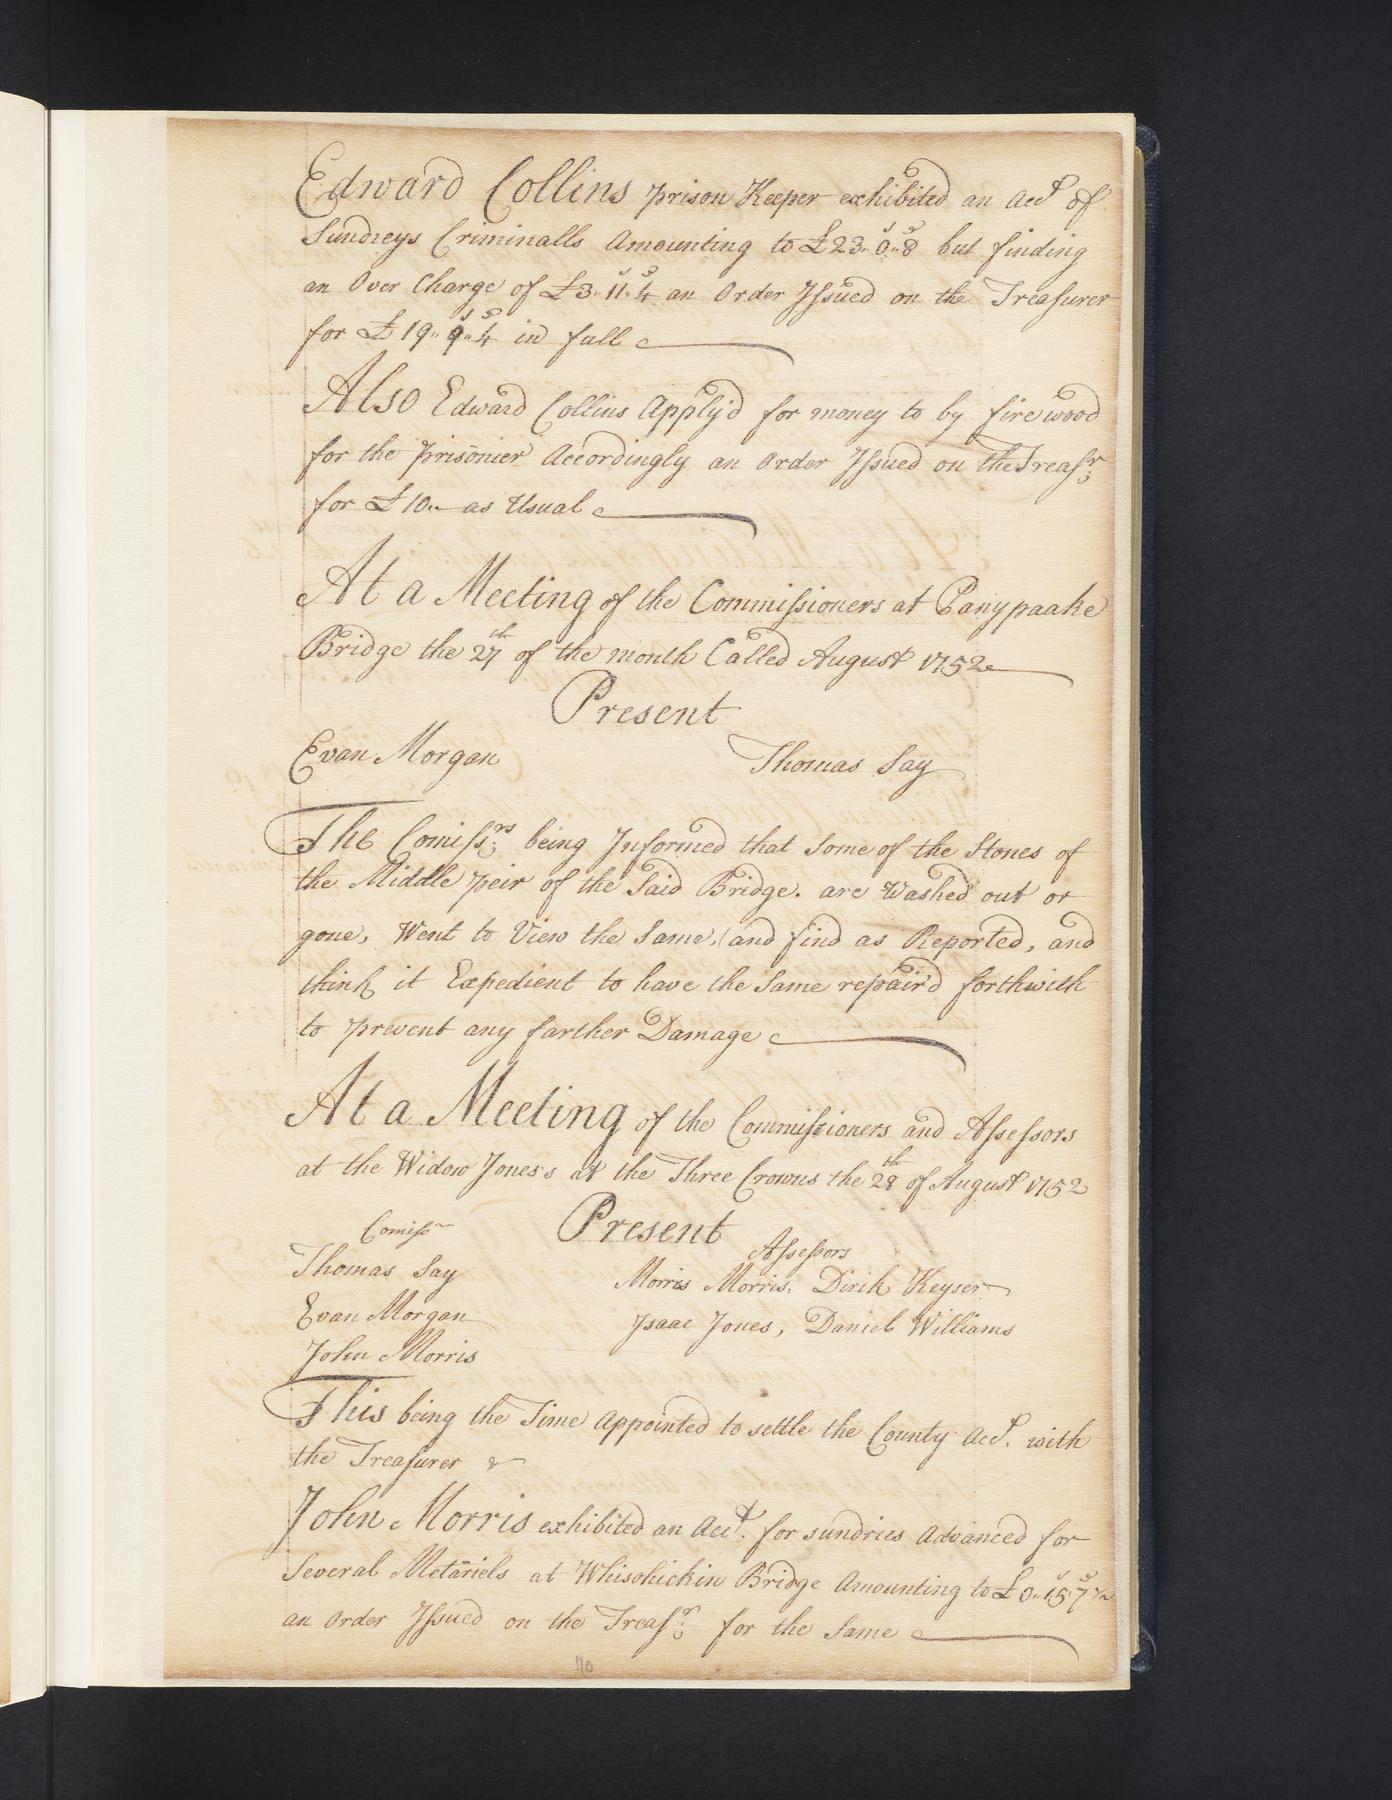 Edward Collins prison Keeper exhibited an Acct of
Sundreys Criminalls Amounting to £23"0s"8d but finding
an Over Charge of £3"11s"4d an Order Issued on the Treasurer
for £19"9s"4d in full
Also Edward Collins Apply'd for money to by fire wood
for the prisonier Accordingly an Order Issued on the Treasr:
for £10"— as Usual
At a Meeting of the Commissioners at Panypaake
Bridge the 27th of the month Called August 1752
Present
Evan Morgan Thomas Say
The Comissrs: being Informed that Some of the Stones of
the Middle peir of the Said Bridge. are Washed out or
gone, Went to View the Same, and find as Reported, and
think it Expedient to have the Same repair'd forthwith
to prevent any farther Damage
At a Meeting of the Commissioners and Assessors
at the Widow Jones's at the Three Crowns the 28th of August 1752
Present
Comissr Assessors
Thomas Say Morris Morris, Dirik Keyser
Evan Morgan Isaac Jones, Daniel Williams
John Morris
This being the Time Appointed to settle the County Acct. with
the Treasurer &
John Morris exhibited an Acct. for sundries Advanced for
Several Metariels at Whisohickin Bridge Amounting to £0"15s"7d½
an Order Issued on the Treasr: for the Same
70